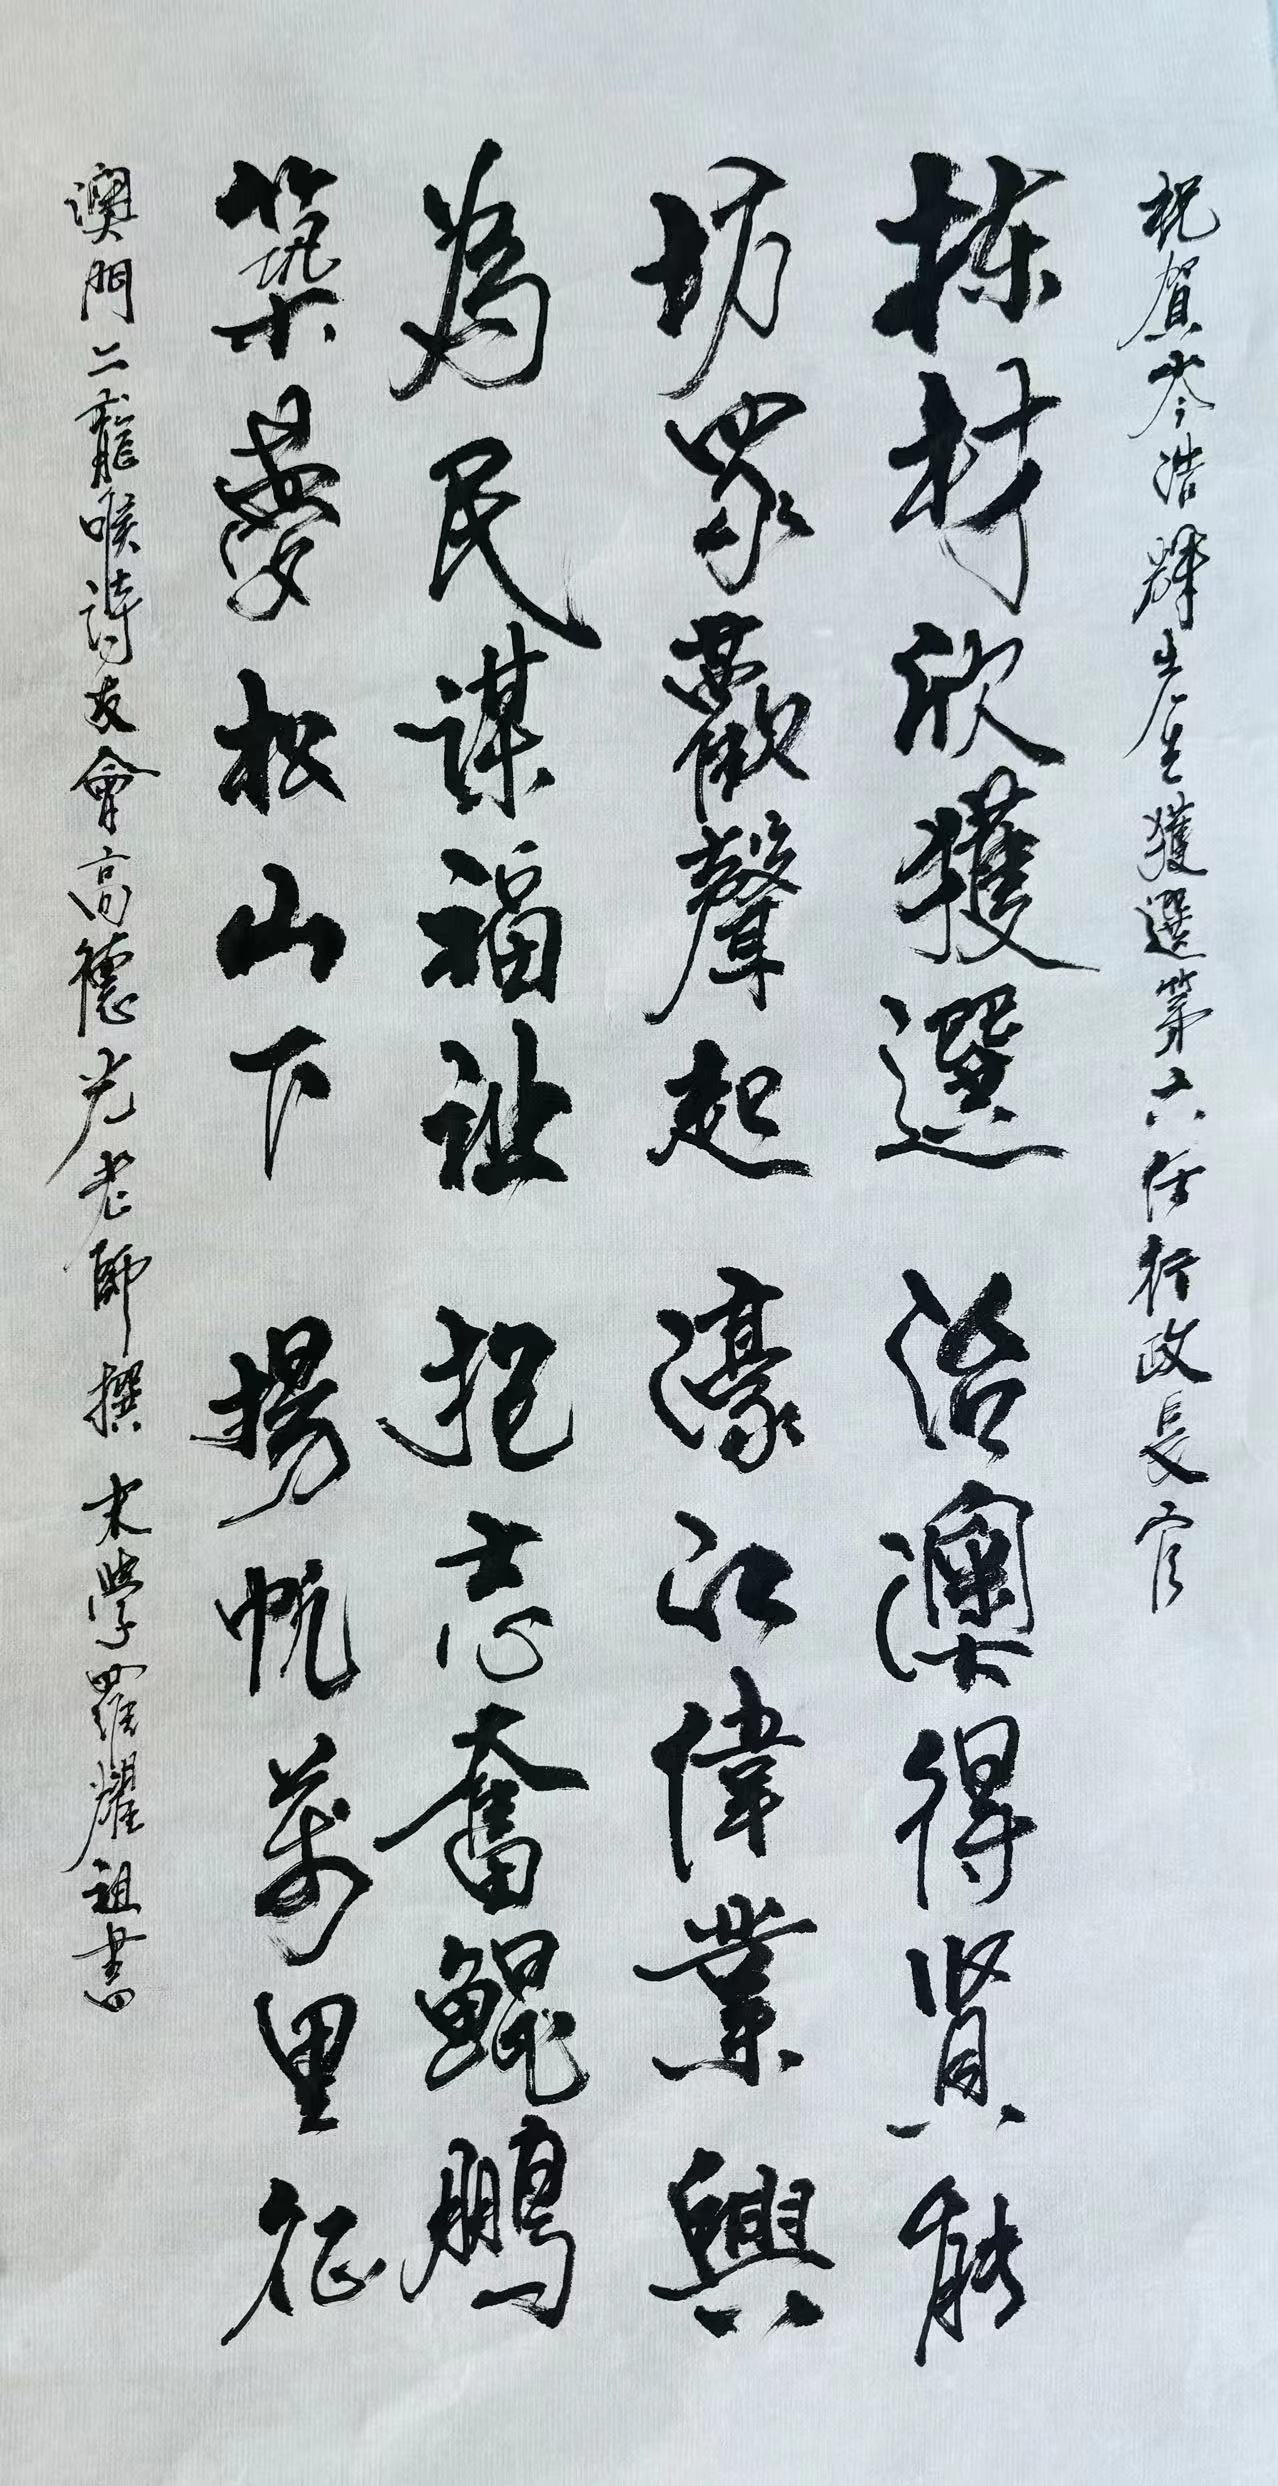 祝賀岑浩輝先生獲選第六任行政長官
揀材欣獲選 治澳得賢能
坊眾歡聲起 濠江偉業興
為民謀福祉 抱志奮鯤鵬
築夢松山下 揚帆萬里征
澳門二龍喉詩友會高德光老師撰 末學羅耀祖書